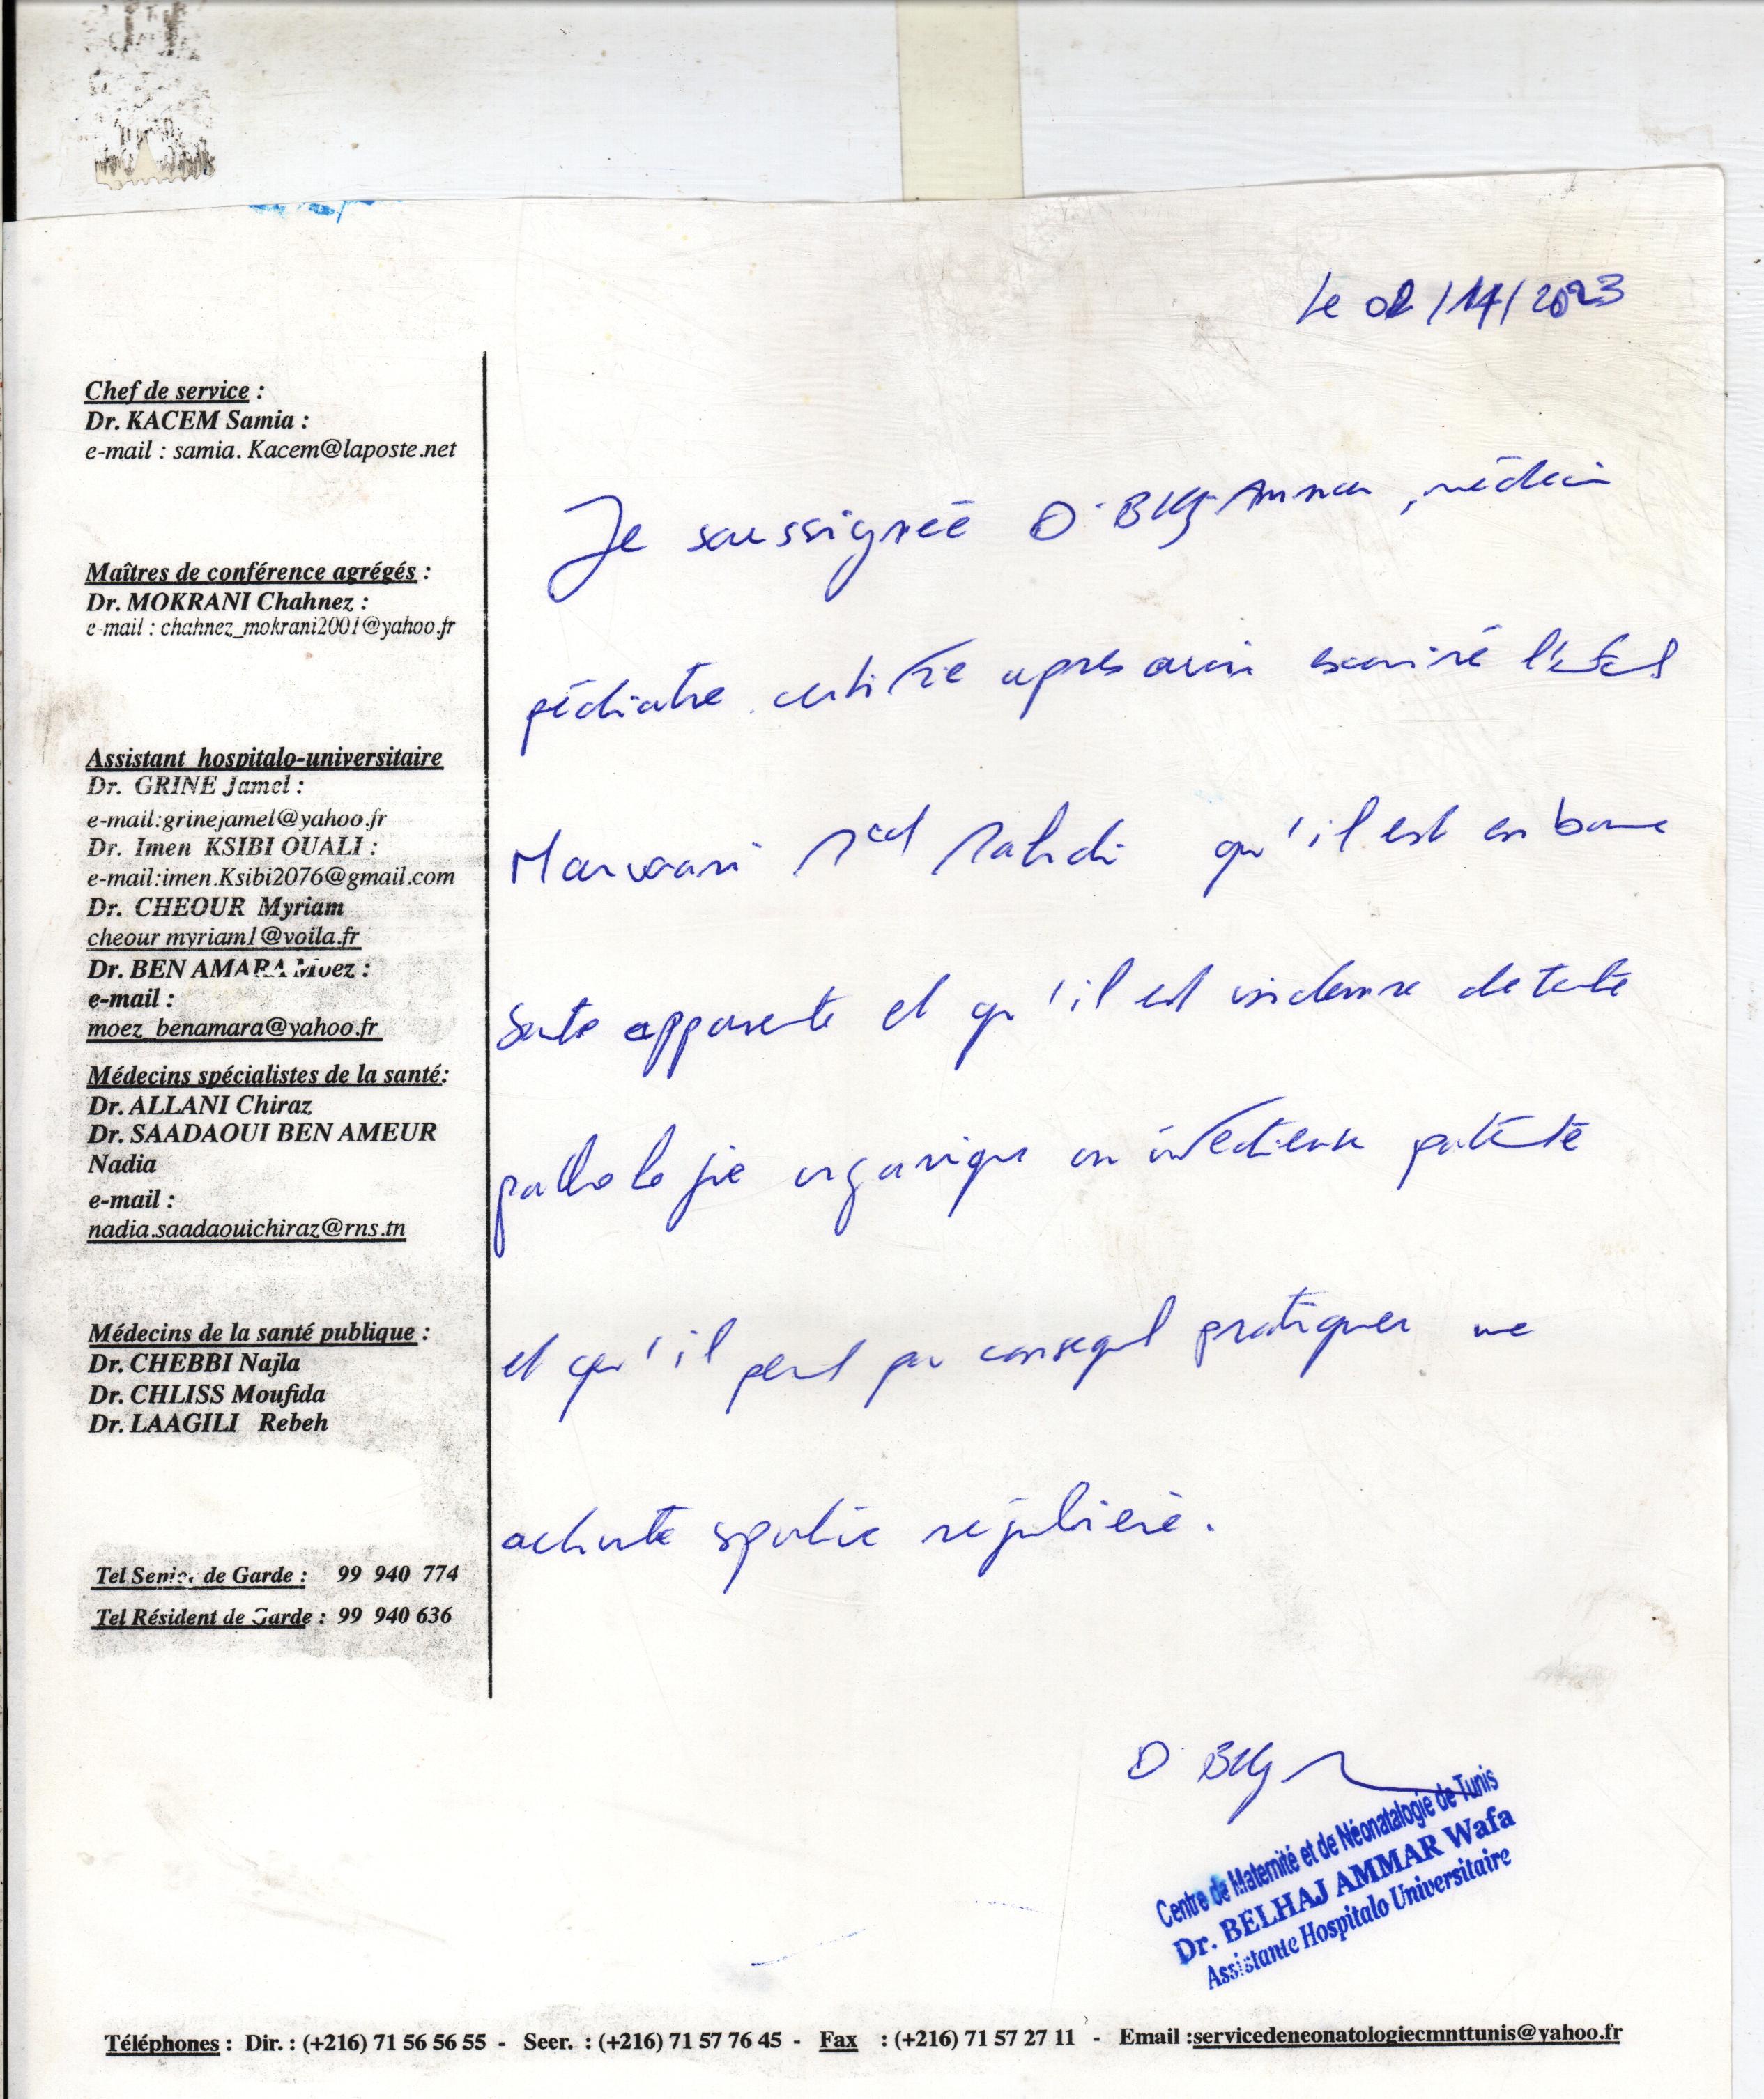 Le 02/11/2023
Chef de service :
Dr. KACEM Samia :
e-mail : samia. Kacem@laposte.net
Maîtres de conférence agrégés :
Dr. MOKRANI Chahnez :
e-mail : chahnez_mokrani2001@yahoo.fr
Assistant hospitalo-universitaire
Dr. GRINE Jamel :
e-mail:grinejamel@yahoo.fr
Dr. Imen KSIBI OUALI :
e-mail:imen.Ksibi2076@gmail.com
Dr. CHEOUR Myriam
cheour myriam1@voila.fr
Dr. BEN AMARA Moez :
e-mail :
moez_benamara@yahoo.fr
Médecins spécialistes de la santé:
Dr. ALLANI Chiraz
Dr. SAADAOUI BEN AMEUR
Nadia
e-mail :
nadia.saadaouichiraz@rns.tn
Médecins de la santé publique :
Dr. CHEBBI Najla
Dr. CHLISS Moufida
Dr. LAAGILI Rebeh
Tel Senior de Garde : 99 940 774
Tel Résident de Garde : 99 940 636
Je soussignée Dr Blhj Ammar, médecin
pédiatre certifie après avoir examiné l'enfant
Marouani Med qu'il est en bonne
santé apparente et qu'il est indemne de toute
pathologie organique ou infectieuse patente
et qu'il peut par conséquent pratiquer une
activité sportive régulière.
Centre de Maternité et de Néonatalogie de Tunis
Dr. BELHAJ AMMAR Wafa
Assistante Hospitalo Universitaire
Téléphones : Dir. : (+216) 71 56 56 55 - Seer. : (+216) 71 57 76 45 - Fax : (+216) 71 57 27 11 - Email :servicedeneonatologiecmnttunis@yahoo.fr